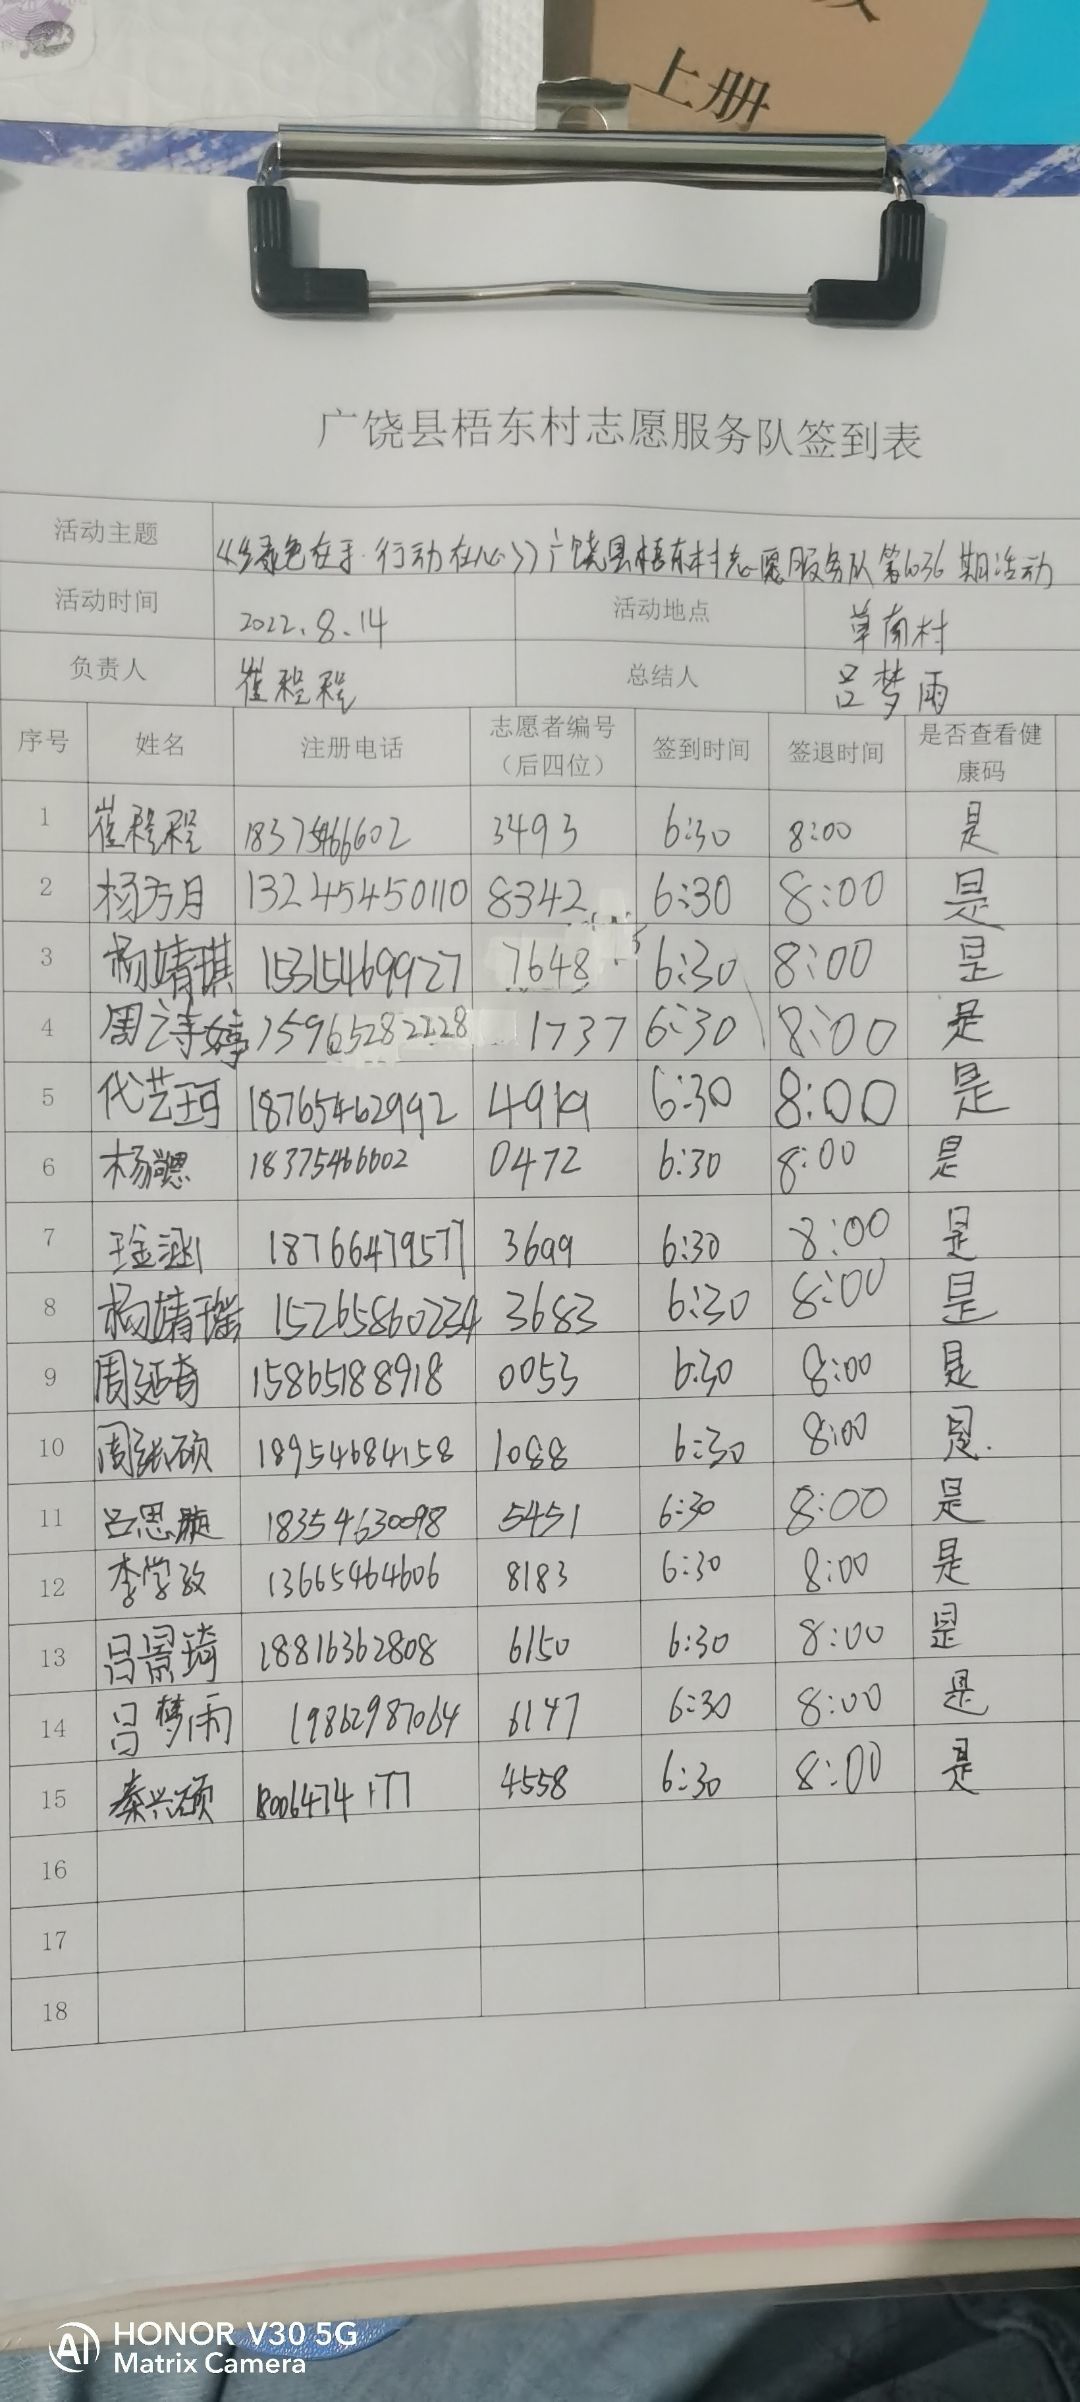 上册
广饶县梧东村志愿服务队签到表
活动主题 《绿色在手·行动在心》广饶县梧东村志愿服务队第1036期活动
活动时间 2022.8.14 活动地点 草南村
负责人 崔程程 总结人 吕梦雨
序号 姓名 注册电话 志愿者编号（后四位） 签到时间 签退时间 是否查看健康码
1 崔程程 18375466602 3493 6:30 8:00 是
2 杨方月 13245450110 8342 6:30 8:00 是
3 杨靖琪 15315469927 7648 6:30 8:00 是
4 周诗婷 15965282228 1737 6:30 8:00 是
5 代艺珂 18765462992 4919 6:30 8:00 是
6 杨 18375466602 0472 6:30 8:00 是
7 王金涵 18766479571 3699 6:30 8:00 是
8 杨靖瑶 15265860234 3683 6:30 8:00 是
9 周延奇 15865188918 0053 6:30 8:00 是
10 周张硕 18954684158 1088 6:30 8:00 是.
11 吕思璇 18354630098 5451 6:30 8:00 是
12 李学孜 13665464606 8183 6:30 8:00 是
13 吕景琦 18816362808 6150 6:30 8:00 是
14 吕梦雨 19862987064 6147 6:30 8:00 是
15 秦兴硕 18006474177 4558 6:30 8:00 是
16
17
18
AI HONOR V30 5G
Matrix Camera